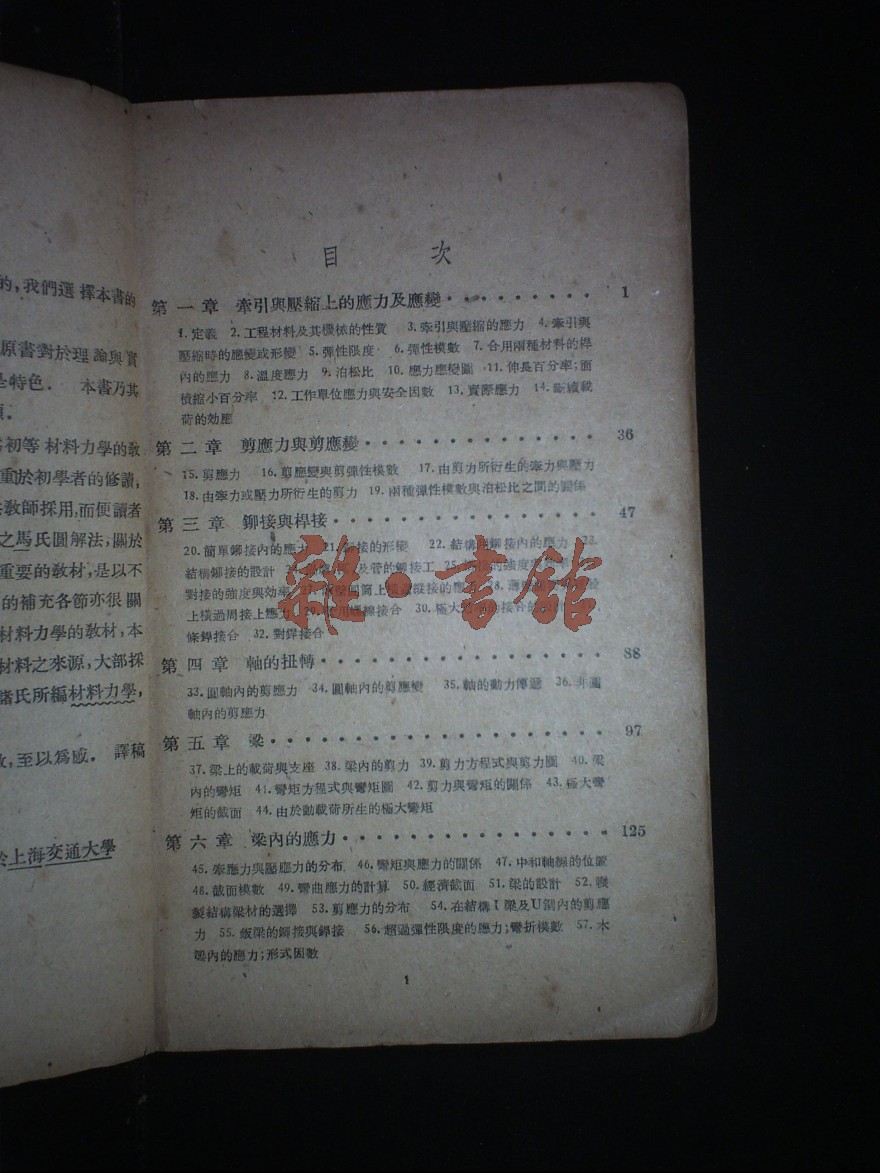 的,我們選擇本書的
原書對於理論與實
是特色. 本書乃其
初等材料力學的敎
重於初學者的修讀,
敎師採用,而便讀者
之馬氏圓解法,關於
重要的敎材,是以不
的補充各節亦很關
材料力學的敎材,本
材料之來源,大部採
諸氏所編材料力學,
至以爲感. 譯稿
於上海交通大學
目 次
第一章 牽引與壓縮上的應力及應變 1
1. 定義 2. 工程材料及其機械的性質 3. 牽引與壓縮的應力 4. 牽引與
壓縮時的應變或形變 5. 彈性限度 6. 彈性模數 7. 合用兩種材料的桿
內的應力 8. 溫度應力 9. 泊松比 10. 應力應變圖 11. 伸長百分率;面
積縮小百分率 12. 工作單位應力與安全因數 13. 實際應力 14. 斷續載
荷的効應
第二章 剪應力與剪應變 36
15. 剪應力 16. 剪應變與剪彈性模數 17. 由剪力所衍生的牽力與壓力
18. 由牽力或壓力所衍生的剪力 19. 兩種彈性模數與泊松比之間的關係
第三章 鉚接與桿接 47
20. 簡單鉚接內的應力 21. 鉚接的形變 22. 結構鉚接內的應力 23.
結構鉚接的設計 及管的鉚接工 25.
對接的強度與効率 的應力 28.
上橫過周接上應力 29. 用 線接合 30. 極大 接合的
條銲接合 32. 對銲接合
第四章 軸的扭轉 88
33. 圓軸內的剪應力 34. 圓軸內的剪應變 35. 軸的動力傳遞 36. 非圓
軸內的剪應力
第五章 梁 97
37. 梁上的載荷與支座 38. 梁內的剪力 39. 剪力方程式與剪力圖 40. 梁
內的彎矩 41. 彎矩方程式與彎矩圖 42. 剪力與彎矩的關係 43. 極大彎
矩的截面 44. 由於動載荷所生的極大彎矩
第六章 梁內的應力 125
45. 牽應力與壓應力的分布 46. 彎矩與應力的關係 47. 中和軸線的位置
48. 截面模數 49. 彎曲應力的計算 50. 經濟截面 51. 梁的設計 52.
製結構梁材的選擇 53. 剪應力的分布 54. 在結構I梁及U鋼內的剪應
力 55. 鈑梁的鉚接與銲接 56. 超過彈性限度的應力;彎折模數 57. 木
梁內的應力;形式因數
1
雜·書館